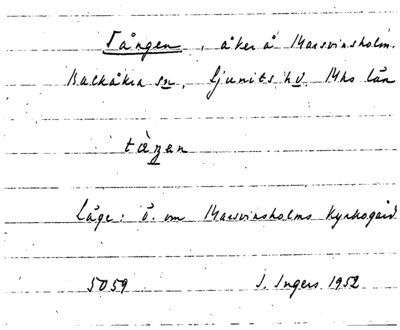 Tången, åker å Marsvinsholm.
Balkåkra sn, Ljunits hd. Mhs län
tåŋen
Läge: ö. om Marsvinsholms Kyrkogård
5059 I. Ingers 1952